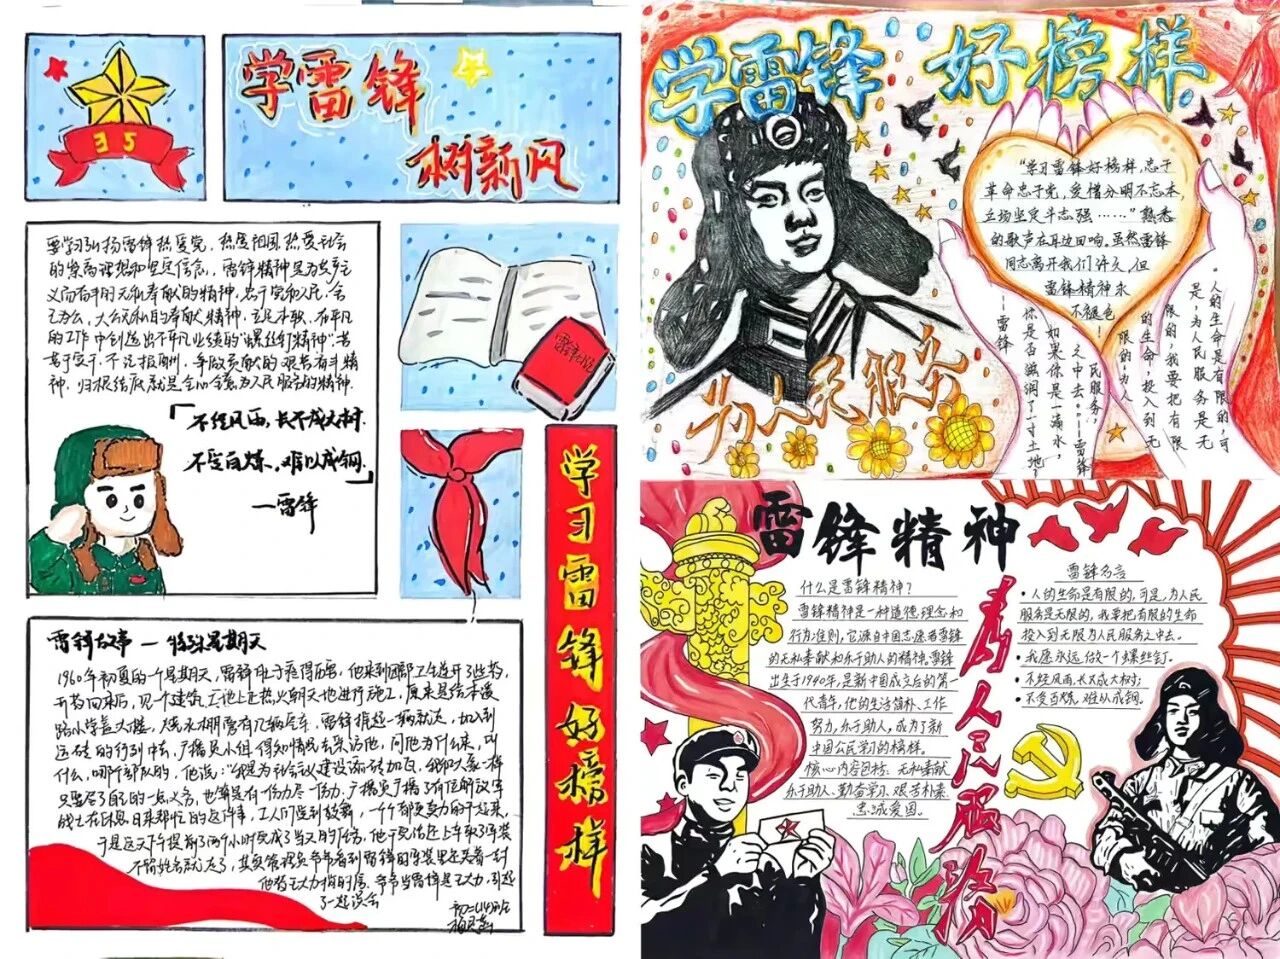 35
学雷锋
树新风
要学习弘扬雷锋热爱党,热爱祖国,热爱社会
的崇高理想和坚定信念,雷锋精神是为共产主
义而奋斗的无私奉献的精神,忠于党和人民,舍
己为公,大公无私的奉献精神,立足本职,在平凡
的工作中创造出不平凡业绩的"螺丝钉精神",苦
干实干,不计报酬,争做贡献的艰苦奋斗精
神,归根结底就是全心全意为人民服务的精神.
「不经风雨,长不成大树.
不受百炼,难以成钢」
—雷锋
雷锋日记
学习雷锋好榜样
雷锋故事 — 特殊星期天
1960年初夏的一个星期天,雷锋肚子疼得厉害,他来到团部卫生连开了些药,
回来后,见一个建筑工地上正热火朝天地进行施工,原来是给本溪
路小学盖大楼,
雷锋推起一辆就走,加入到
运砖的行列中去,广播员小组得知情况去采访他,问他为什么来,叫
什么,哪个部队的,他说:"我是为社会主义建设添砖加瓦,我和大家一样
只要尽了自己的一点义务,也算是有一份力尽一份力,广播员广播了有位解放军
战士在休息日来帮忙的这件事,工人们受到鼓舞,一个个都更卖力的干起来,
于是这天下午提前了两个小时完成了当天的任务,
不留姓名就走了,
学雷锋 好榜样
"学习雷锋好榜样,忠于
革命忠于党,爱憎分明不忘本,
立场坚定斗志强……"熟悉
的歌声在耳边回响,虽然雷锋
同志离开我们许久,但
雷锋精神永
不褪色!
"人的生命是有限的,可
是,为人民服务是无
限的,我要把有限
的生命,投入到无
限的为人
民服务,
之中去。"—雷锋
如果你是一滴水,
你是否滋润了一寸土地?
—雷锋
为人民服务
雷锋精神
什么是雷锋精神?
雷锋精神是一种道德理念和
行为准则,它源自中国志愿者雷锋
的无私奉献和乐于助人的精神.雷锋
出生于1940年,是新中国成立后的第一
代青年,他的生活简朴、工作
努力,乐于助人,成为了新
中国公民学习的榜样。
核心内容包括:无私奉献
乐于助人、勤奋学习、艰苦朴素
忠诚爱国。
为人民服务
雷锋名言
• 人的生命是有限的,可是,为人民
服务是无限的,我要把有限的生命
投入到无限为人民服务之中去。
• 我愿永远做一个螺丝钉。
• 不经风雨,长不成大树;
• 不受百炼,难以成钢。